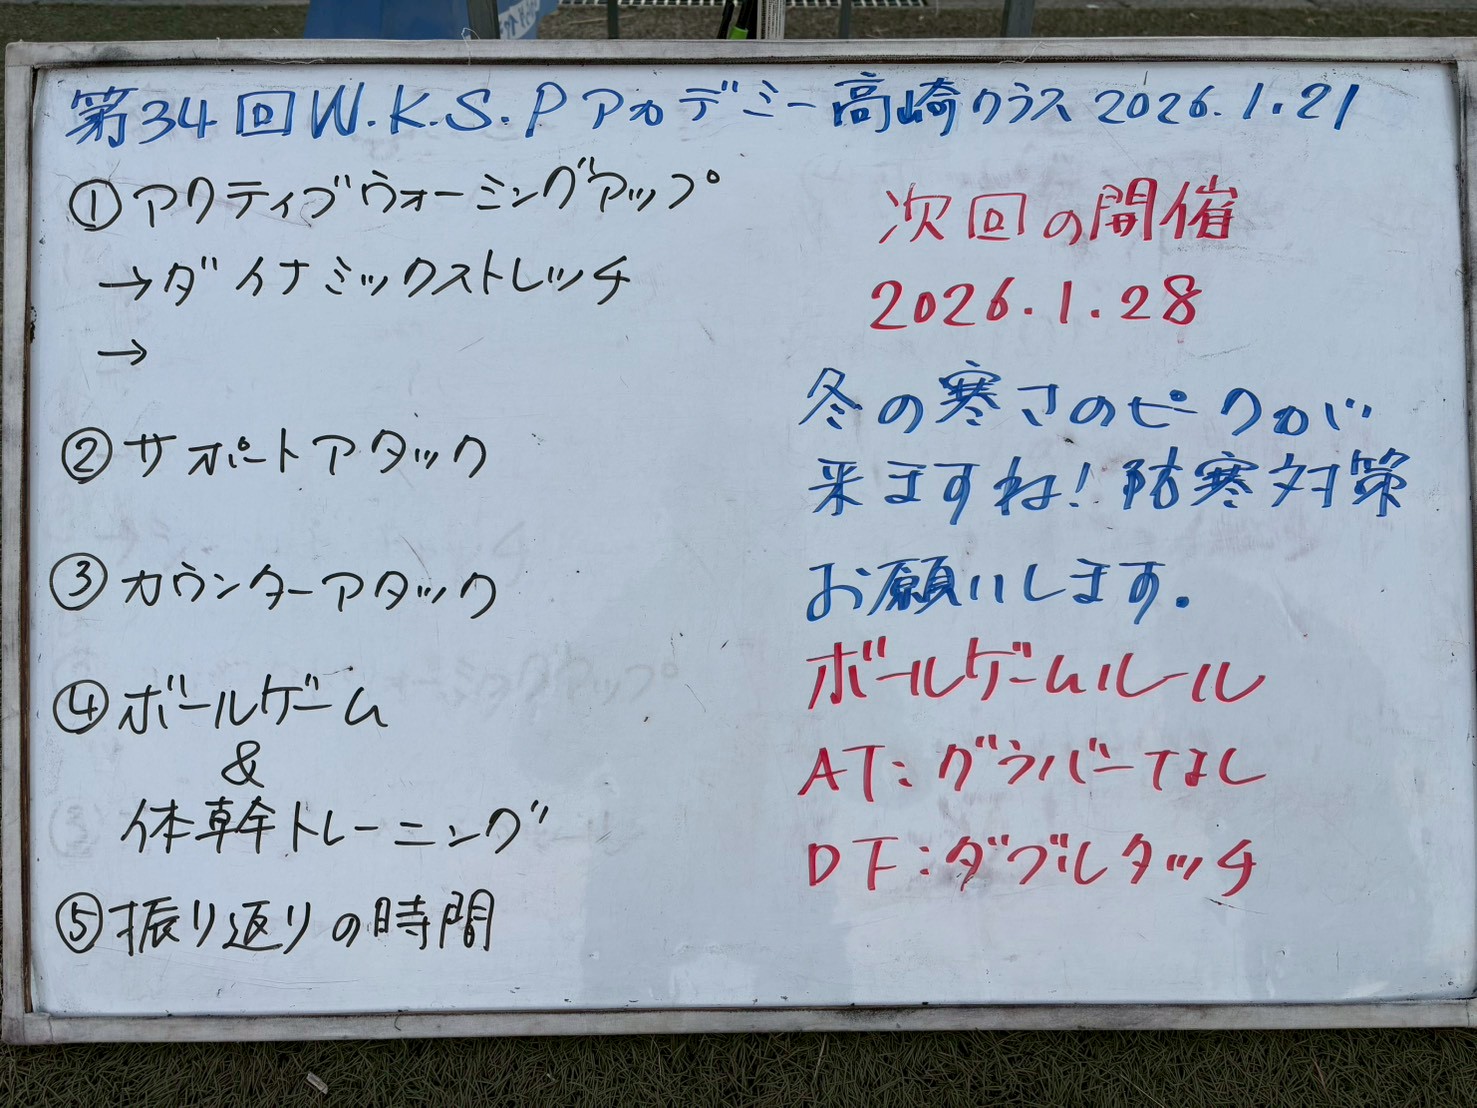 第34回W.K.S.Pアカデミー高崎クラス2026.1.21
①アクティブウォーミングアップ
→ダイナミックストレッチ
→
②サポートアタック
③カウンターアタック
④ボールゲーム
&
体幹トレーニング
⑤振り返りの時間
次回の開催
2026.1.28
冬の寒さのピークが
来ますね!防寒対策
お願いします.
ボールゲームルール
AT:グラバーなし
DF:ダブルタッチ